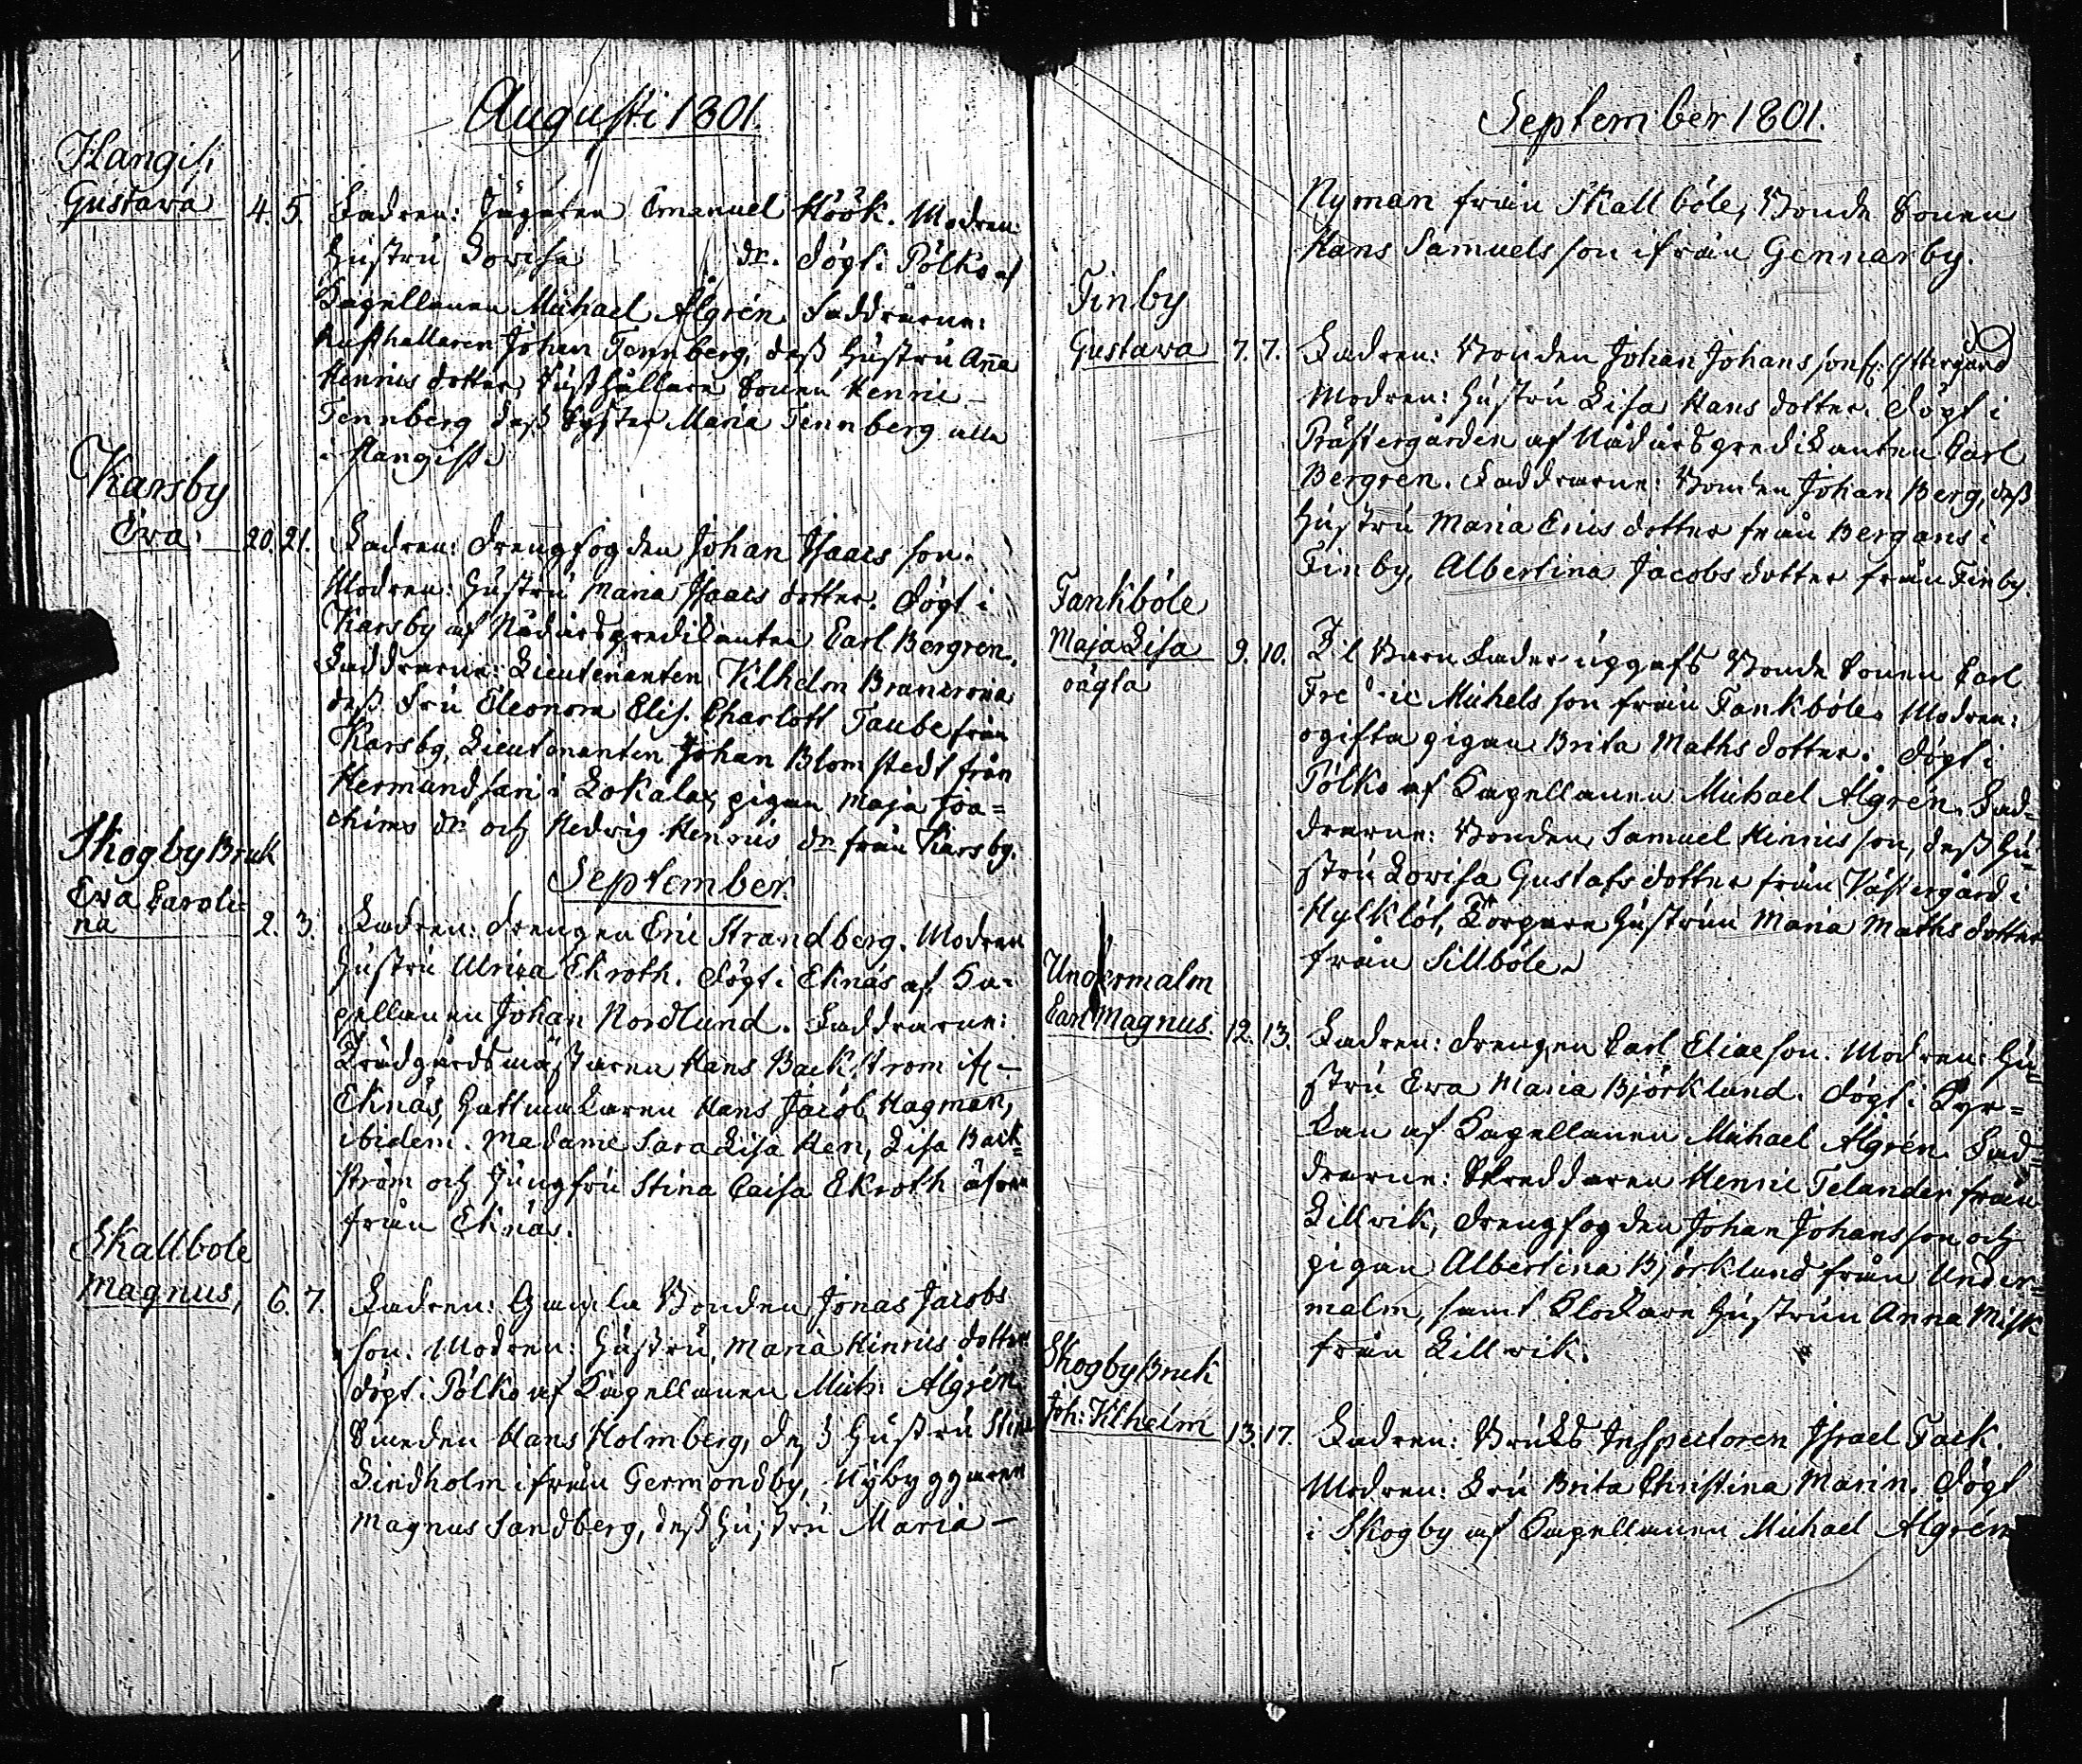 Augusti 1801.
Hangis,
Gustava 4. 5. Fadren: Jägaren Emanuel Höök. Modren:
Hustru Lovisa dr. döpt i Pölkö af
Capellanen Michael Algrén. Faddrarne:
Rusthållaren Johan Tennberg, dess Hustru Anna
Henrics dotter, Rusthållare Sonen Henric
Tennberg dess Syster Maria Tennberg alla
i Hangist.
Karsby
Eva. 20. 21. Fadren: Drengfogden Johan Isaacs son.
Modren: Hustru Maria Isaacs dotter. döpt i
Karsby af Nådårspredikanten Carl Bergren.
Faddrarne: Lieutenanten Vilhelm
dess Fru Eleonora Elis. Charlott Taube från
Karsby, Lieutenanten Johan Blomstedt från
i Lokalax, pigan Maja Joa=
chims dr. och Hedvig Henrics dr. från Karsby.
September.
Skogby Bruk
Eva Caroli=
na 2. 3. Fadren: Drengen Eric Strandberg. Modren
Hustru Ulrica Ekroth. döpt i Eknäs af Ca=
pellanen Johan Nordlund. Faddrarne:
Trädgårdsmästaren Hans Backstrom if:
Eknäs, Hattmakaren Hans Jacob Hagman,
ibidem. Madame Sara Lisa Hen, Lisa Back=
ström och Jungfru Stina Caisa Ekroth äfven
från Eknäs.
Skallbole
Magnus, 6. 7. Fadren: Gamla Bonden Jonas Jacobs
son. Modren: Hustru Maria Hinrics dotter
döpt i Pölkö af Capellanen Mich: Algrén.
Smeden Hans Holmberg, dess Hustru Stina
Lindholm ifrån Germondby, Nybyggaren
Magnus Sandberg, dess Hustru Maria –
September 1801.
Nyman från Skallböle, Bonde Sonen
Hans Samuels son ifrån Gennarby.
Finby
Gustava 7. 7. Fadren: Bonden Johan Johans son fr: Ysttergård
Modren: Hustru Lisa Hans dotter. döpt i
Prästergården af Nådårspredikanten Carl
Bergren. Faddrarne: Bonden Johan Berg, dess
Hustru Maria Erics dotter från Bergans i
Finby, Albertina Jacobs dotter från Finby.
Fankböle
Maja Lisa 9. 10. Til Barn Fader uppgafs Bonde Sonen Carl
oägta
Fredric Michels son från Fankböle. Modren:
ogifta pigan Brita Maths dotter. döpt i
Pölkö af Capellanen Michael Algrén. Fad=
drarne: Bonden Samuel Hinrics son, dess Hu=
stru Lovisa Gustafs dotter från Västergård i
Torpare Hustrun Maria Maths dotter
från Sillböle.
Undermalm
Carl Magnus. 12. 13. Fadren: Drengen Carl Eliae son. Modren: Hu=
stru Eva Maria Björklund. döpt i Kyr=
kan af Capellanen Michael Algrén. Fad=
drarne: Skreddaren Henric Telander från
Lillvik, Drengfogden Johan Johans son och
pigan Albertina Björklund från Under=
malm, samt Klockare Hustrun Anna Misk
från Lillvik.
Skogby Bruk
Joh: Vilhelm 13. 17. Fadren: Bruks Inspectoren Israel Fack.
Modren: Fru Brita Christina Marin. döpt
i Skogby af Capellanen Michael Algrén